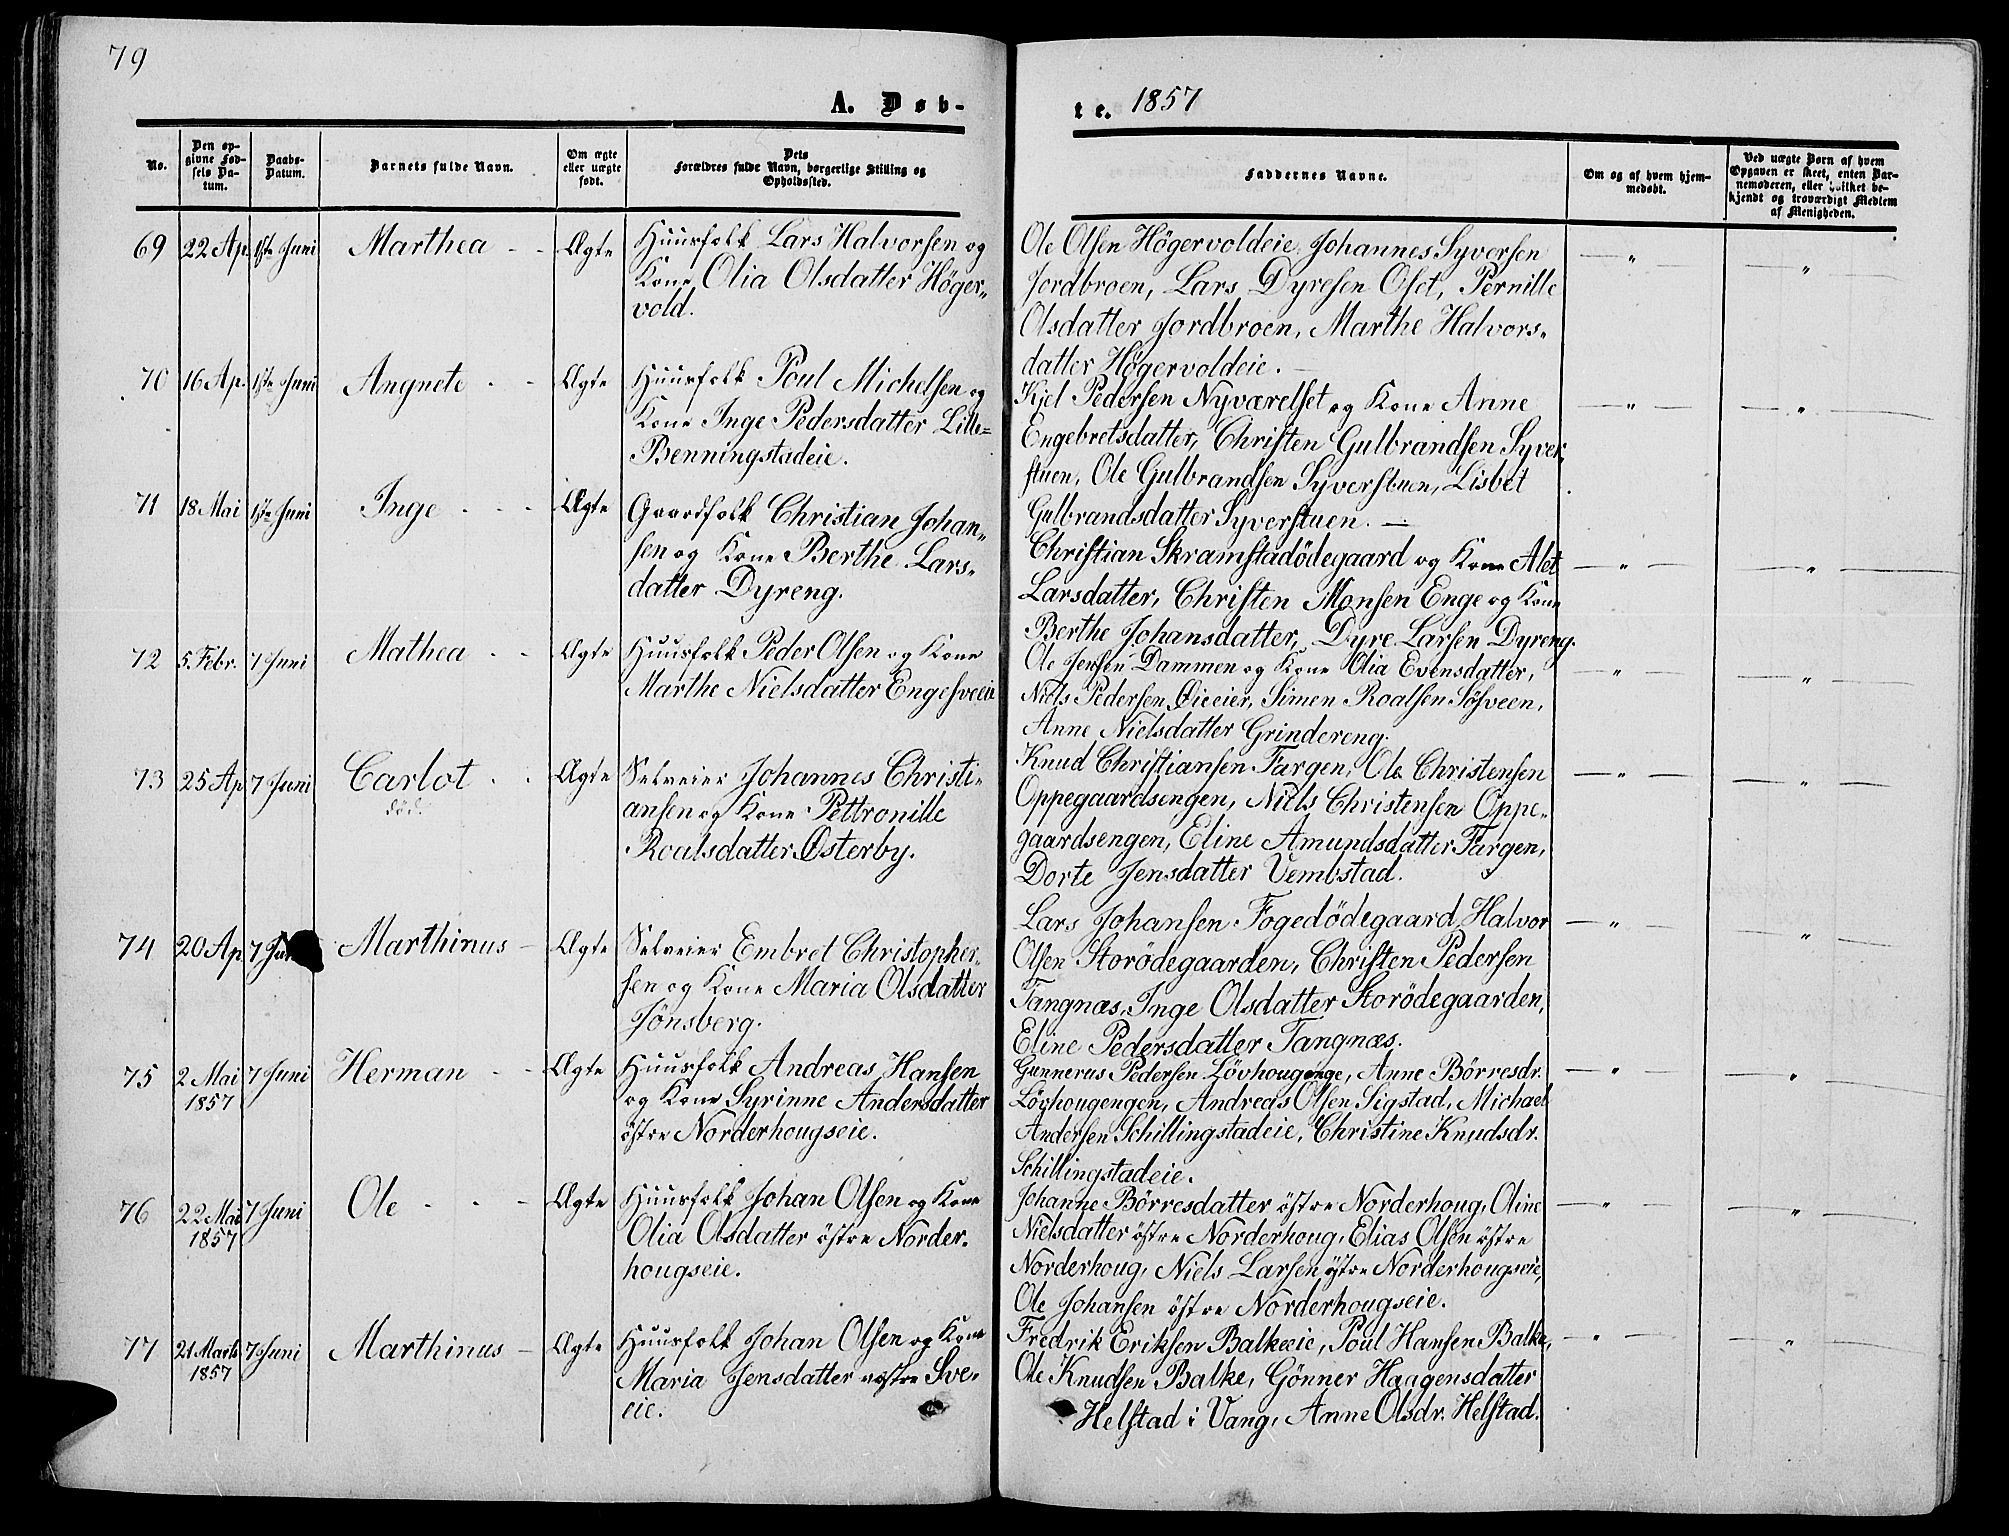 79
A. Døb-
te. 1857
No.
Den op-
givne Fød-
sels Da-
tum.
Daabs-
Datum.
Barnets fulde Navn.
Om ægte
eller uægte
født.
Dets
Forældres fulde Navn, borgerlige Stilling og
Opholdssted.
Faddernes Navne.
Om og af hvem hjem-
medøbt.
Ved uægte Børn af hvem
Opgaven er skeet, enten Bar-
nemoderen, eller hvilket be-
kjendt og troværdigt Medlem
af Menigheden.
69 22 Ap. 1ste Juni Marthea - - Ægte
Huusfolk Lars Halvorsen og
Kone Olia Olsdatter Höger-
vold.
Ole Olsen Högervoldeie, Johannes Syversen
Jordbroen, Lars Dyresen Olset, Pernille
Olsdatter Jordbroen, Marthe Halvors-
datter Högervoldeie. —
— „ — — „ —
70 16 Ap. 1ste Juni Angnete - - Ægte
Huusfolk Poul Michelsen og
Kone Inge Pedersdatter Lille-
Benningstadeie.
Kjel Pedersen Nyværelset og Kone Anne
Engebretsdatter, Christen Gulbrandsen Syver-
stuen, Ole Gulbrandsen Syverstuen, Lisbet
Gulbrandsdatter Syverstuen. —
— „ — — „ —
71 18 Mai 1ste Juni Inge - - - Ægte
Gaardfolk Christian Johan-
sen og Kone Berthe Lars-
datter Dyreng.
Christian Skramstadödegaard og Kone Alet
Larsdatter, Christen Monsen Enge og Kone
Berthe Johansdatter, Dyre Larsen Dyreng.
— „ — — „ —
72 5. Febr. 7 Juni Mathea - - Ægte
Huusfolk Peder Olsen og Kone
Marthe Nielsdatter Engesveeie
Ole Jensen Dammen og Kone Olia Evensdatter,
Niels Pedersen Öieeier, Simen Roalsen Sösveen,
Anne Nielsdatter Grindereng.
— „ — — „ —
73 25 Ap 7 Juni Carlot - - Ægte
död.
Selveier Johannes Christi-
ansen og Kone Pettronille
Roalsdatter Østerby.
Knud Christiansen Fargen, Ole Christensen
Oppegaardsengen, Niels Christensen Oppe-
gaardsengen, Eline Amundsdatter Fargen,
Dorte Jensdatter Vembstad.
— „ — — „ —
74 20 Ap 7 Marthinus - Ægte
Selveier Embret Christopher-
sen og Kone Maria Olsdatter
Jønsberg.
Lars Johansen Fogedödegaard, Halvor
Olsen Storödegaarden, Christen Pedersen
Tangnæs, Inge Olsdatter Storödegaarden,
Eline Pedersdatter Tangnæs.
— „ — — „ —
75 2 Mai 7 Juni Herman - - Ægte
1857
Huusfolk Andreas Hansen
og Kone Syrinne Andersdatter
östre Norderhougseie.
Gunnerus Pedersen Lövhougenge, Anne Börresdr.
Lövhougengen, Andreas Olsen Sigstad, Michael
Andersen Schillingstadeie, Christine Knudsdr.
Schillingstadeie.
— „ — — „ —
76 22 Mai 7 Juni Ole - - - Ægte
1857
Huusfolk Johan Olsen og Kone
Olia Olsdatter östre Norder-
hougseie.
Johanne Börresdatter östre Norderhoug, Oline
Nielsdatter östre Norderhoug, Elias Olsen östre
Norderhoug, Niels Larsen östre Norderhougseie,
Ole Johansen östre Norderhougseie.
— „ — — „ —
77 21 Marts 7 Juni Marthinus - Ægte
1857
Huusfolk Johan Olsen og Kone
Maria Jensdatter vestre Sve-
eie.
Fredrik Eriksen Balkeeie, Poul Hansen Balke,
Ole Knudsen Balke, Gönner Haagensdatter
Helstad i Vang, Anne Olsdr. Helstad.
— „ — — „ —